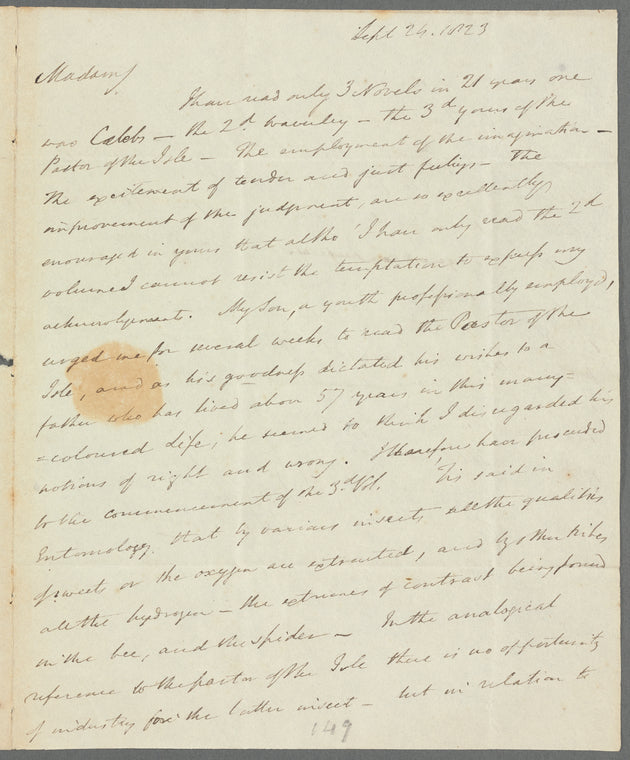 Sept 24. 1823
Madam/
I have read only 3 Novels in 21 years one
was Calebs — the 2.d Waverley — the 3d yours of the
Pastor of the Isle — The employment of the imagination —
the excitement of tender and just feelings — the
improvement of the judgment, are so excellently
encouraged in yours that altho' I have only read the 2d
volume I cannot resist the temptation to express my
acknowlgements. My Son, a youth professionally employ'd,
urged me for several weeks to read the Pastor of the
Isle, and as his goodness dictated his wishes to a
father who has lived above 57 years in this many=
=coloured life; he seemed to think I disregarded his
notions of right and wrong. I therefore have proceeded
to the commencement of the 3.d Vol. 'Tis said in
Entomology that by various insects all the qualities
of sweets or the oxygen are extracted, and by other tribes
all the hydrogen — the extremes of contrast being found
in the bee, and the spider — In the analogical
reference to the Pastor of the Isle there is no opportunity
of industry for the latter insect — but in relation to
149